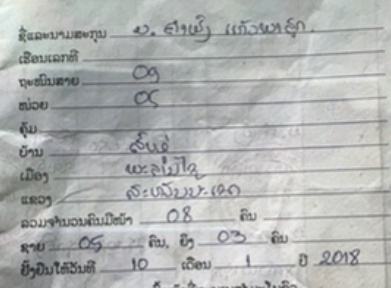 ຊື່ແລະນາມສະກຸນ ທ. ຄຳຜົງ ແກ້ວພາສຸກ
ເຮືອນເລກທີ
ຖະໜົນສາຍ 09
ໜ່ວຍ 05
ຄຸ້ມ
ບ້ານ
ເມືອງ
ແຂວງ ສະຫວັນນະເຂດ
ລວມຈຳນວນຄົນມີໜ້າ 08 ຄົນ
ຊາຍ 05 ຄົນ, ຍິງ 03 ຄົນ
ຢັ້ງຢືນໃຫ້ວັນທີ 10 ເດືອນ 1 ປີ 2018